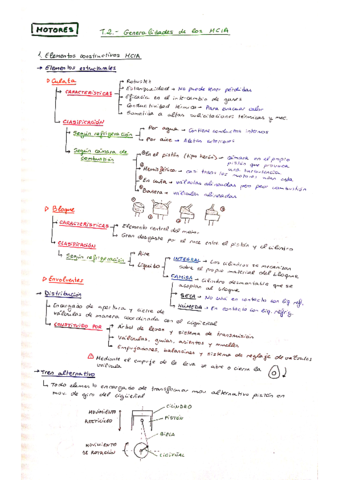 MOTORES
T.2.- Generalidades de los MCIA
1. Elementos constructivos MCIA
Elementos estructurales
Culata
CARACTERÍSTICAS
Robustez
Estanqueidad → No puede tener pérdidas
Eficacia en el intercambio de gases
Conductividad térmica → Para evacuar calor
Sometida a altas solicitaciones térmicas y mec.
CLASIFICACIÓN
Según refrigeración
Por agua → Contiene conductos internos
Por aire → Aletas exteriores
Según cámara de combustión
En el pistón (tipo Herón) → Cámara en el propio pistón que provoca una turbulencia
Hemisférica → con
En cuña → válvulas alineadas pero peor combustión
Bañera → válvulas alineadas
Bloque
CARACTERÍSTICAS
Elemento central del motor
Gran desgaste por el roce entre el pistón y el cilindro
CLASIFICACIÓN
Según refrigeración
Aire
Líquido
INTEGRAL → Los cilindros se mecanizan sobre el propio material del bloque
CAMISA → Cilindro desmontable que se acopla al bloque
SECA → No está en contacto con líq. refrig.
HÚMEDA → En contacto con líq. refrig.
Envolventes
Distribución
Encargado de apertura y cierre de válvulas de manera coordinada con el cigüeñal
CONSTITUIDO POR
Árbol de levas y sistema de transmisión
Válvulas, guías, asientos y muelles
Empujadores, balancines y sistema de reglaje de válvulas
Mediante el empuje de la leva se abre o cierra la válvula
Tren alternativo
Todo elemento encargado de transformar mov. alternativo pistón en mov. de giro del cigüeñal
MOVIMIENTO RECTILÍNEO
CILINDRO
PISTÓN
BIELA
MOVIMIENTO DE ROTACIÓN
CIGÜEÑAL